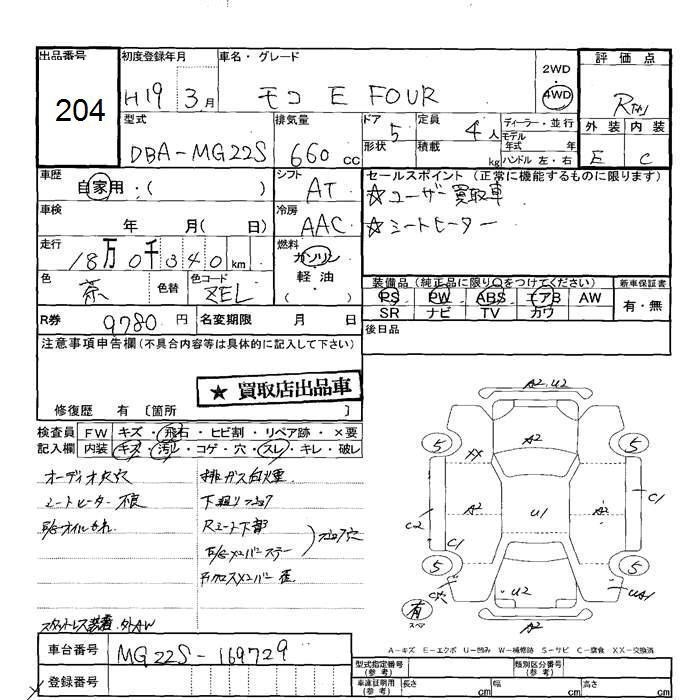 出品番号 初度登録年月 車名・グレード 評価点
204 H19 3月 モコ E FOUR 2WD 4WD R
型式 排気量 ドア 5 定員 4人 ディーラー・並行 外装 内装
DBA-MG22S 660cc 形状 積載 kg モデル年式 年式 ハンドル 左・右 E C
車歴 自家用:( ) シフト AT セールスポイント (正常に機能するものに限ります)
☆ユーザー買取車
車検 年 月( 日) 冷房 AAC ☆シートヒーター
走行 18万0千340km 燃料 ガソリン 軽油 ( )
色 茶 色替 色コード ZEL
装備品 (純正品に限り○をつけてください) 新車保証書
PS PW ABS エアB AW 有・無
SR ナビ TV カワ
R券 9780円 名変期限 月 日 後日品
注意事項申告欄(不具合内容等は具体的に記入して下さい)
★買取店出品車
修復歴 有 〔箇所 〕
検査員 FW キズ・飛石・ヒビ割・リペア跡・×要
記入欄 内装 キズ・汚れ・コゲ・穴・スレ・キレ・破レ
オーディオ欠穴 排ガス白煙
シートヒーター不良 下廻りコロフ
E/Gオイルもれ
車台番号 MG22S-169729
登録番号
A2.U2
A2
5 5
XX
A2 U1 A2
C2 C1 C1
5 5
U2 UA1
有 スペア
A2
A-キズ E-エクボ U-凹み W-補修跡 S-サビ C-腐食 XX-交換済
型式指定番号(参考) 類別区分番号(参考)
車庫証明用(参考) 長さ cm 幅 cm 高さ cm